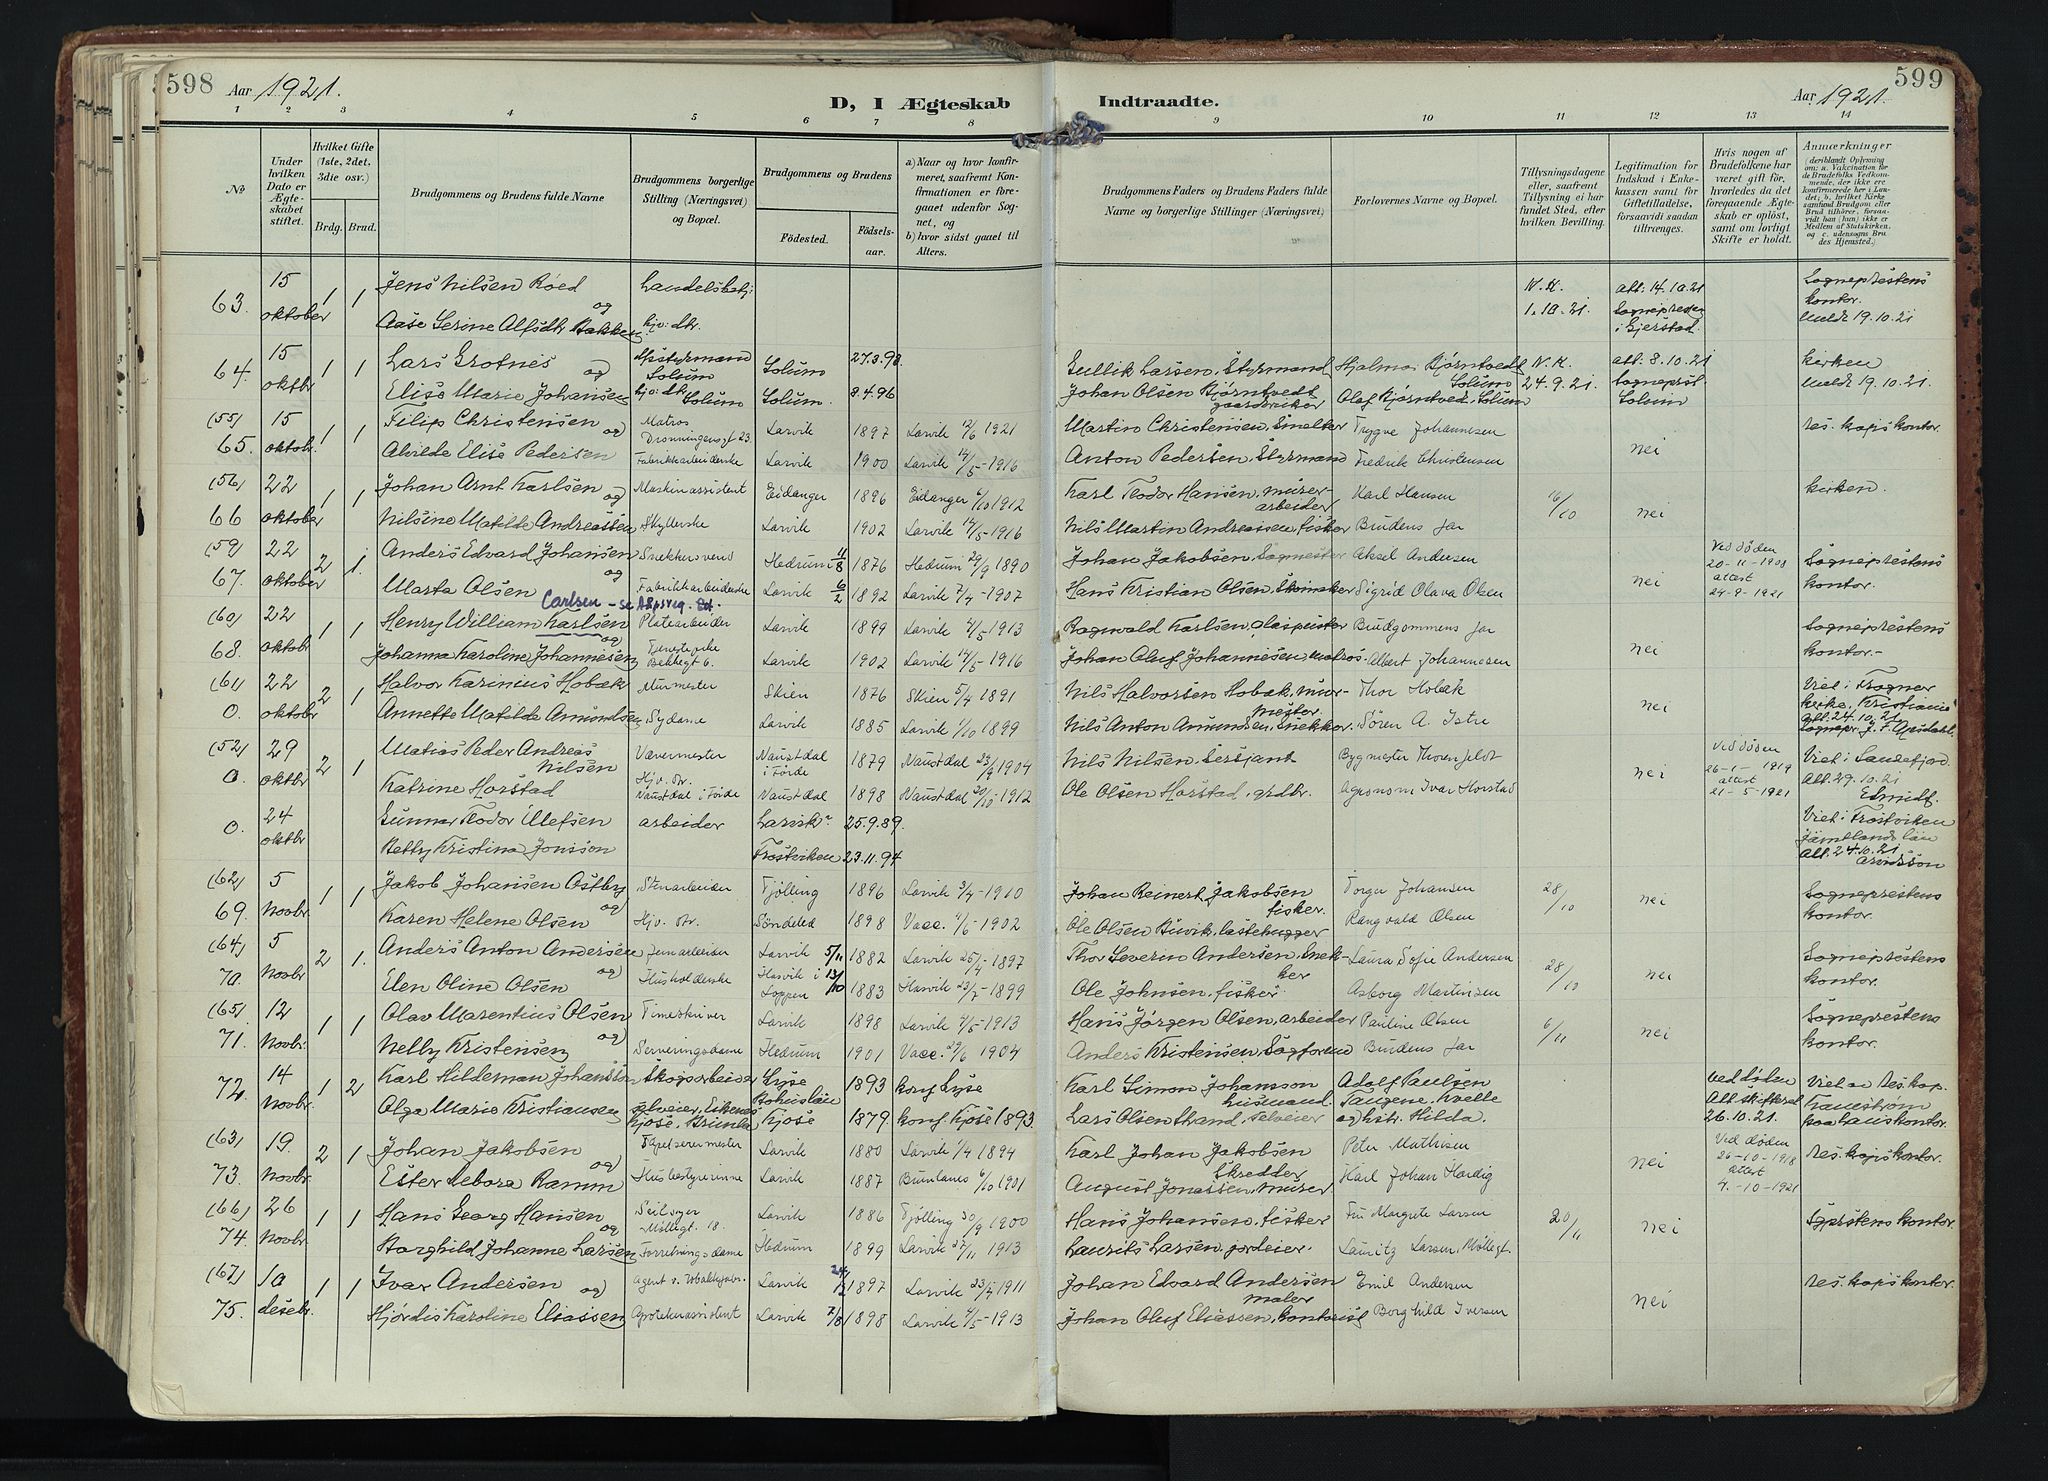 598
Aar 1921.
D, I Ægteskab
Indtraadte.
Aar 1921.
599
1 2 3 4 5 6 7 8 9 10 11 12 13 14
№
Under hvilken Dato er Ægteskabet stiftet.
Hvilket Gifte (1ste, 2det, 3die osv.)
Brdg. Brud.
Brudgommens og Brudens fulde Navne
Brudgommens borgerlige Stilling (Næringsvei) og Bopæl.
Brudgommens og Brudens
Födested.
Födselsaar.
a) Naar og hvor konfirmeret, saafremt Konfirmationen er foregaaet udenfor Sognet, og
b) hvor sidst gaaet til Alters.
Brudgommens Faders og Brudens Faders fulde Navne og borgerlige Stillinger (Næringsvei)
Forlovernes Navne og Bopæl.
Tillysningsdagene eller, saafremt Tillysning ei har fundet Sted, efter hvilken Bevilling.
Legitimation for Indskud i Enkekassen samt for Giftetilladelse, forsaavidt saadan tiltrænges.
Hvis nogen af Brudefolkene har været gift för, hvorledes da det foregaaende Ægteskab er oplöst, samt om lovligt Skifte er holdt.
Anmærkninger
(deriblandt Oplysning om: a. Vakcination for de Brudefolks Vedkommende, der ikke ere konfirmerede her i Landet; b. hvilket Kirkesamfund Brudgom eller Brud tilhörer, forsaavidt han (hun) ikke er Medlem af Statskirken, og c. udensogns Brudes Hjemsted.)
63. 15 oktober 1 1 Jens Nilsen Röed og handelsbetj: N.K. att: 14.10.21 Sogneprestens kontor.
Aase Serine Alfsdtr Bakken hjv: dtr. 1.10.21. Sognepresten i Gjerstad. Meldt 19.10.21
64. 15 oktbr 1 1 Lars Grotnes og Solum Solum 27.3.98 Gullik Larsen, Styrmand Hjalmar Bjørntvedt Solum N.K. att: 8.10.21 kirken
Elise Marie Johansen hjv: dtr Solum Solum. 8.4.96 Johan Olsen Bjørntvedt gaardbruker, Olaf Bjørntved, Solum 24.9.21. Sogneprst Solum Meldt 19.10.21.
(55) 65. 15 oktobr. 1 1 Filip Christensen og Matros Dronningensgt 23. Larvik 1897 Larvik 12/6 1921 Martin Christensen, Smelter Trygve Johannesen nei res. kaps kontor.
Alvilde Elise Pedersen Fabrikkarbeiderske Larvik 1900 Larvik 14/5-1916 Anton Pedersen, Styrmand Fredrik Christensen
(56) 66 22 oktober 1 1 Johan Arnt Karlsen og Maskinassistent Eidanger 1896 Eidanger 6/10 1912 Karl Teodor Hansen, murerarbeider Karl Hansen 16/10 nei kirken.
Nilsine Matilde Andreassen Larvik 1902 Larvik 14/5-1916 Nils Martin Andreasen, fisker Brudens far
(59) 67. 22 oktober 2 1. Anders Edvard Johansen og Snekkersvend Hedrum 11/8 1876 Hedrum 29/9 1890 Johan Jakobsen, Sagmester Aksel Andersen nei Ved döden 20-11-1908 attest 24-9-1921 Sogneprestens kontor.
Marta Olsen Fabrikkarbeiderske Larvik 6/2 1892 Larvik 7/4-1907 Hans Kristian Olsen, Skomaker Sigrid Olava Olsen
Carlsen - se
(60) 68. 22 oktobr 1 1 Henry William Karlsen og Platearbeider Larvik 1899 Larvik 4/5-1913 Ragnvald Karlsen, glaspuster Brudgommens far nei Sogneprestens kontor.-
Johanna Karoline Johannesen Larvik 1902 Larvik 14/5-1916 Johan Oluf Johannesen, matros. Albert Johannesen
(61) 0. 22 oktober 2 1 Halvor Karinius Hobæk Murmester Skien 1876 Skien 5/4 1891 Nils Halvorsen Hobæk, murmester Thor Hobæk nei Viet i Frogner Kirke, Kristiania att. 24.10.21
Annette Matilde Amundsen Sydame Larvik 1885 Larvik 1/10 1899 Nils Anton Amundsen, Snekker. Sören A. Istre
(52) 0. 29 oktbr 2 1 Matias Peder Andreas Nilsen Vævermester Naustdal i Förde 1879 Naustdal 23/9 1904 Nils Nilsen, Sersjant Bygmester nei Ved döden 26-1-1919 attest 21-5-1921 Viet i Sandefjord. Att. 29.10.21
Katrine Horstad Hjv. dtr. Naustdal i Förde Naustdal 1898 Naustdal 20/10-1912 Ole Olsen Horstad, grdbr. Agronom Ivar Horstad
0. 24 oktbr Gunnar Teodor Ulefsen arbeider Larvik 25.9.89. Viet i Frostviken Jämtlands län att. 24.10.21 Arvidsson
Betty Kristina Jonsson Frostviken 23.11.94
(62) 69. 5 Novbr. 1 1 Jakob Johansen Östby og Stenarbeider Tjölling 1896 Larvik 3/4-1910 Johan Reinert Jakobsen fisker. Torger Johansen 28/10 nei Sogneprestens kontor.
Karen Helene Olsen Hjv. dtr. Söndeled 1898 Vacc. 4/6-1902 Ole Olsen lastehugger Rangvald Olsen
(64) 70. 5 Novbr. 2 1. Anders Anton Andersen og Jernarbeider Larvik 5/11 1882 Larvik 25/4-1897 Thor Severin Andersen, Snekker Laura Sofie Andersen 28/10 nei Sogneprestens kontor.
Elen Oline Olsen Husholderske Hasvik i Loppen 13/10 1883 Hasvik 23/7-1899 Ole Johnsen, fisker Asborg Martinsen
(65) 71. 12 Novbr. 1 1 Olav Marentius Olsen og Timeskriver Larvik 1898 Larvik 4/5-1913 Hans Jörgen Olsen, arbeider Pauline Olsen 6/11 nei Sogneprestens kontor.
Nelly Kristensen Serveringsdame Hedrum 1901 Vacc. 29/6 1904 Anders Kristensen, Brudens far
72. 14 Novbr. 1 2 Karl Hildeman Johansson Skogsarbeider Lyse Bohuslän 1893 konf. Lyse Karl Simon Johansson husmand. Adolf Paulsen ved döden Att. skifteret 26.10.21. Viet av res. kap.
Olga Marie Kristiansen selveier, Eikenes Kjose, Brunla Kjose 1879 konf. Kjose 1893. Lars Olsen Strand, selveier og hstr. Hilda. paa hans kontor.
(63) 73. 19. Novbr. 2 1 Johan Jakobsen og Tapetserermester Larvik 1880 Larvik 1/4 1894 Karl Johan Jakobsen Skredder Peter Mathisen nei Ved döden 26-10-1918 attest 4.-10-1921 res. kaps kontor.
Ester Debora Ramm Husbestyrerinne Larvik 1887 Brunlanes 6/10 1901 August Jonassen, murer. Karl Johan Hardig
(66) 74. 26 Novbr. 1 1 Hans Georg Hansen og Möllegt. 18. Larvik 1886 Tjölling 30/9 1900 Hans Johansen, fisker Fru Margrete Larsen 20/11 nei Sprstens kontor.
Borghild Johanne Larsen Forretningsdame Hedrum 1899 Larvik 1913 Laurits Larsen, jordeier. Lauritz Larsen, Möllegt.
(67) 75. 10 desebr. 1 1 Ivar Andersen og Larvik 24/12 1897 Larvik 23/4 1911 Johan Edvard Andersen maler Emil Andersen nei res. kaps kontor.
Hjørdis Karoline Eliassen Apotekerassistent Larvik 7/8 1898 Larvik 4/5-1913 Johan Oluf Eliassen, kontorist Borghild Iversen